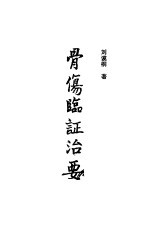 骨傷臨証治要
刘溪桐 著